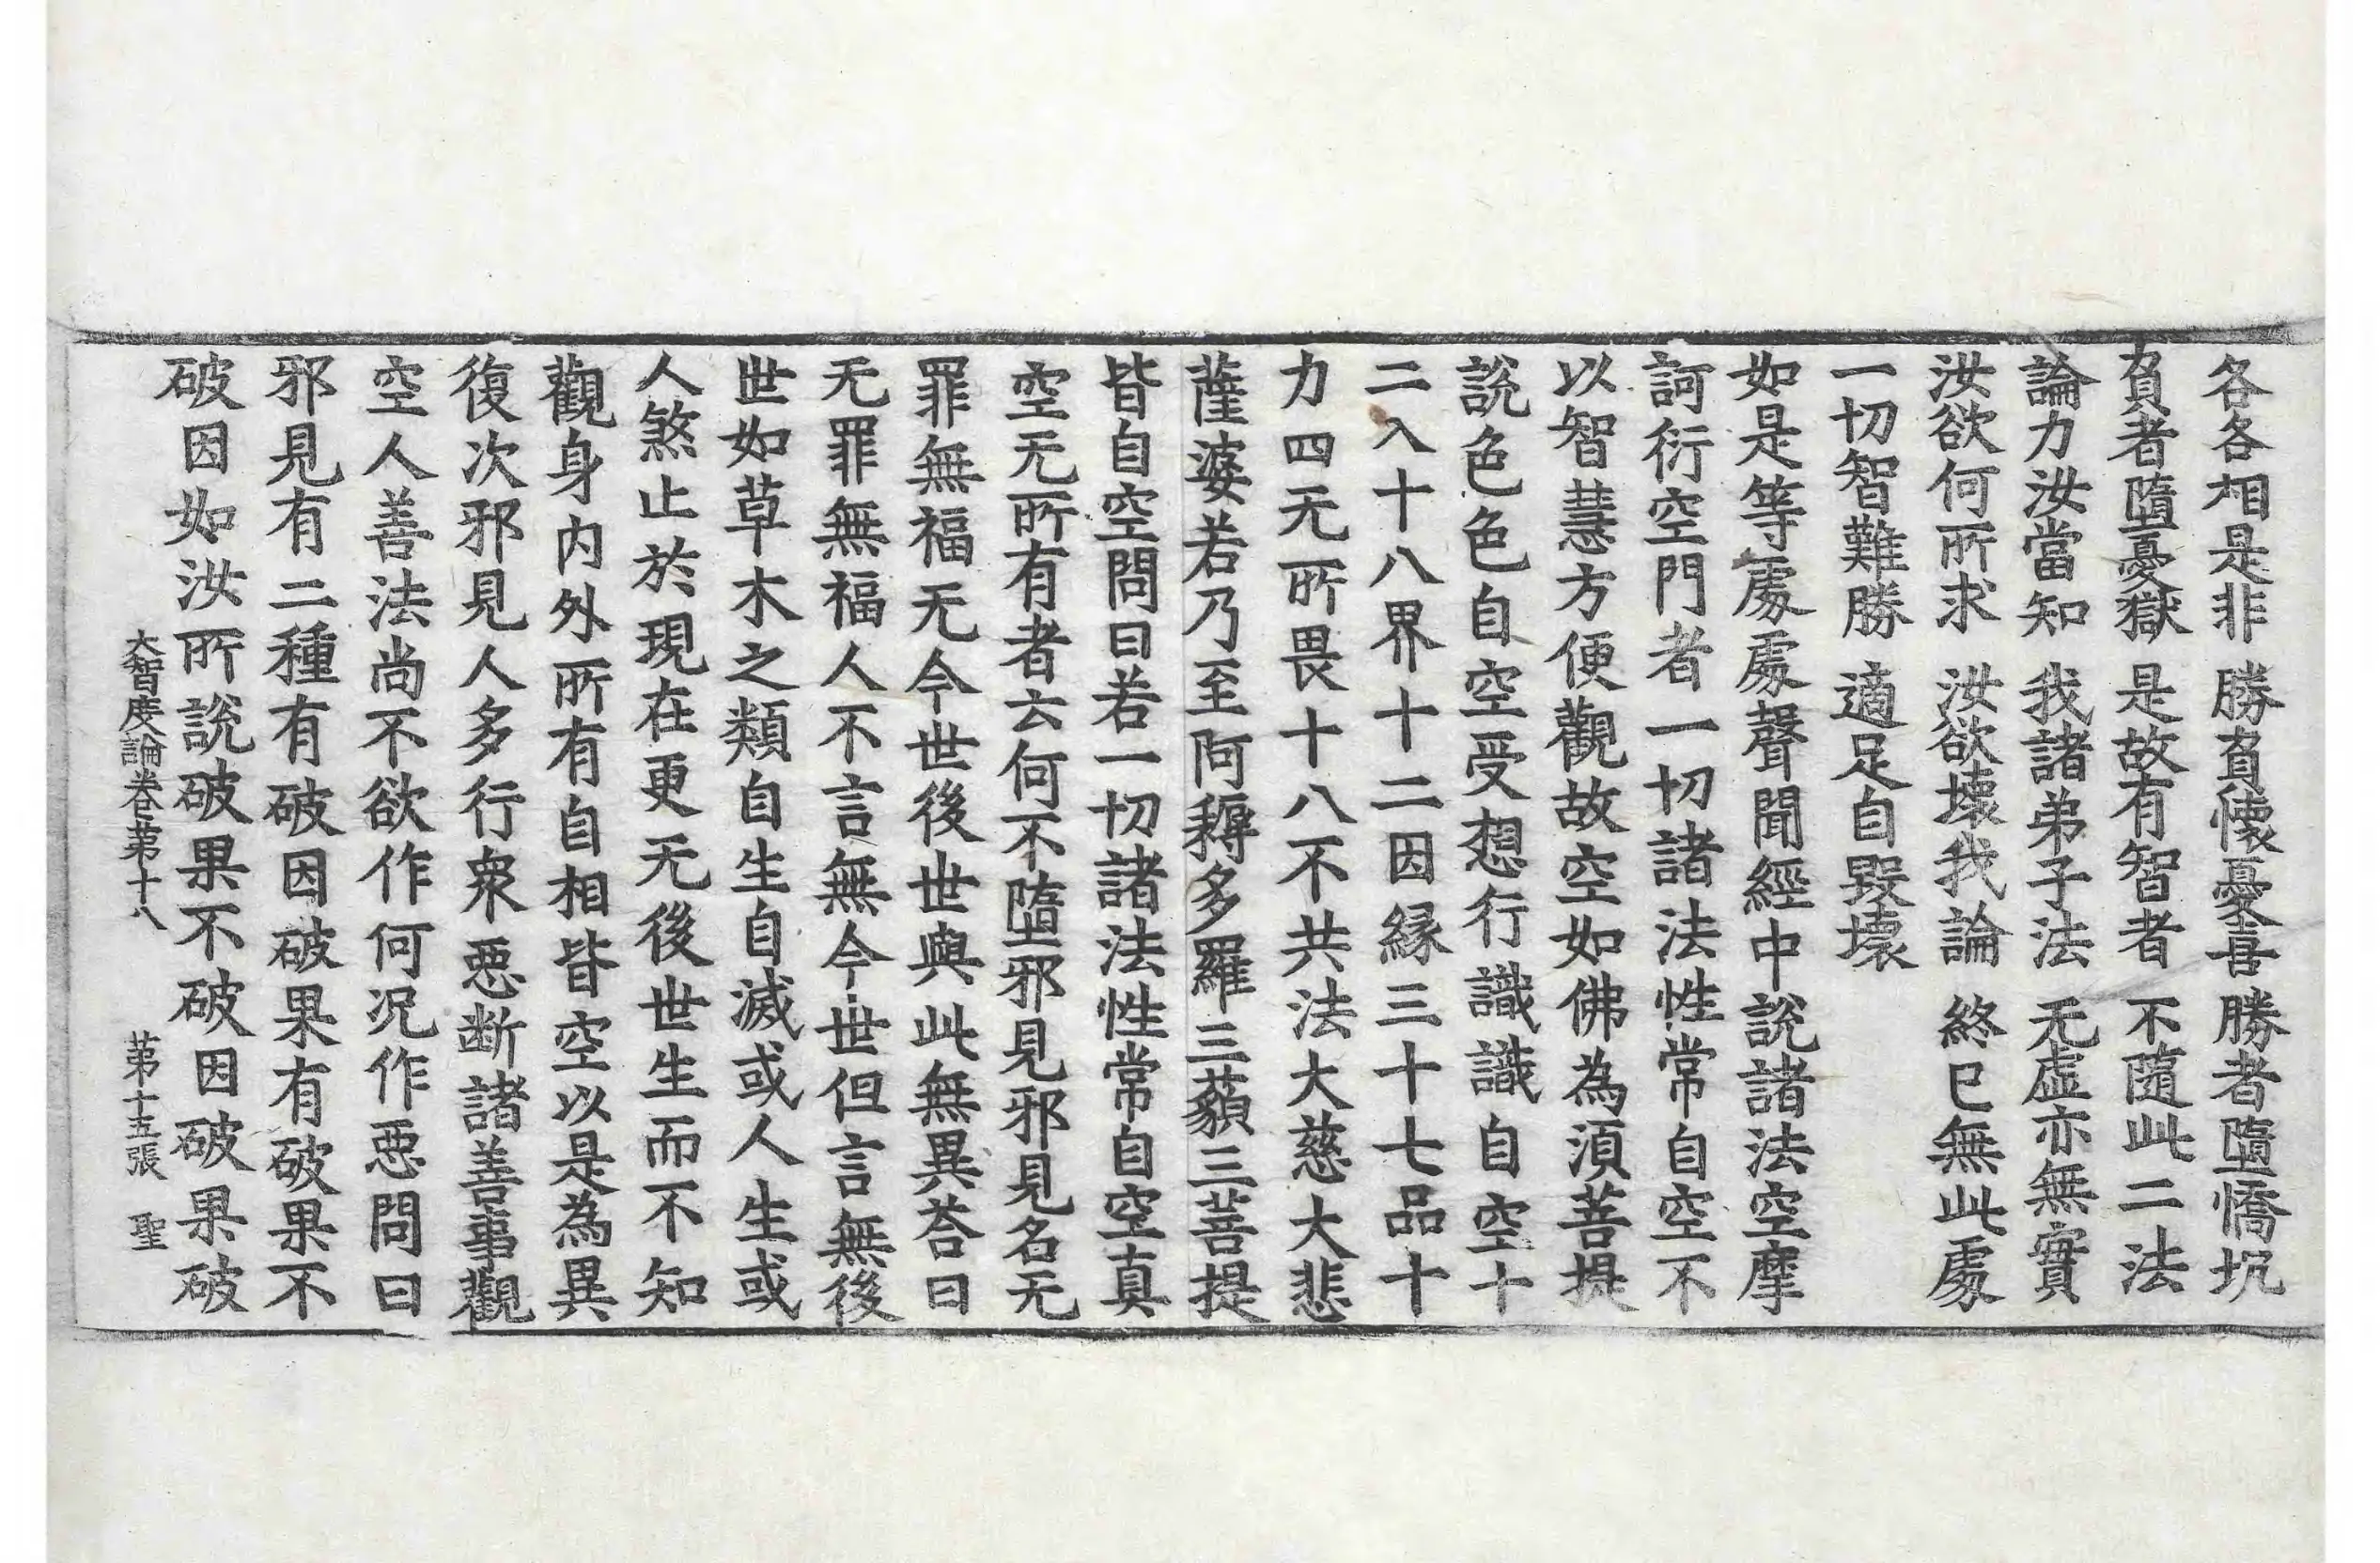 各各相是非 勝負懷憂喜 勝者墮憍坑
負者墮憂獄 是故有智者 不隨此二法
論力汝當知 我諸弟子法 无虛亦無實
汝欲何所求 汝欲壞我論 終已無此處
一切智難勝 適足自毀壞
如是等處處聲聞經中說諸法空摩
訶衍空門者一切諸法性常自空不
以智慧方便觀故空如佛為須菩提
說色色自空受想行識識自空十
二入十八界十二因緣三十七品十
力四无所畏十八不共法大慈大悲
薩婆若乃至阿耨多羅三藐三菩提
皆自空問曰若一切諸法性常自空真
空无所有者云何不墮邪見邪見名无
罪無福无今世後世與此無異荅曰
无罪無福人不言無今世但言無後
世如草木之類自生自滅或人生或
人煞止於現在更无後世生而不知
觀身內外所有自相皆空以是為異
復次邪見人多行衆惡断諸善事觀
空人善法尚不欲作何况作惡問曰
邪見有二種有破因破果有破果不
破因如汝所說破果不破因破果破
大智度論卷苐十八 苐十五張 聖